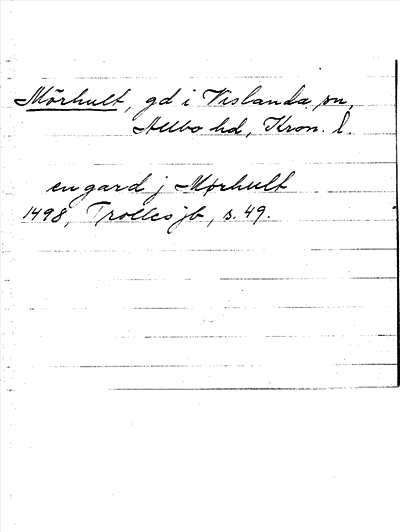 Mörhult, gd i Vislanda sn,
Allbo hd, Kron. l.
en gard j Mørhult
1498, Trolles jb, s. 49.